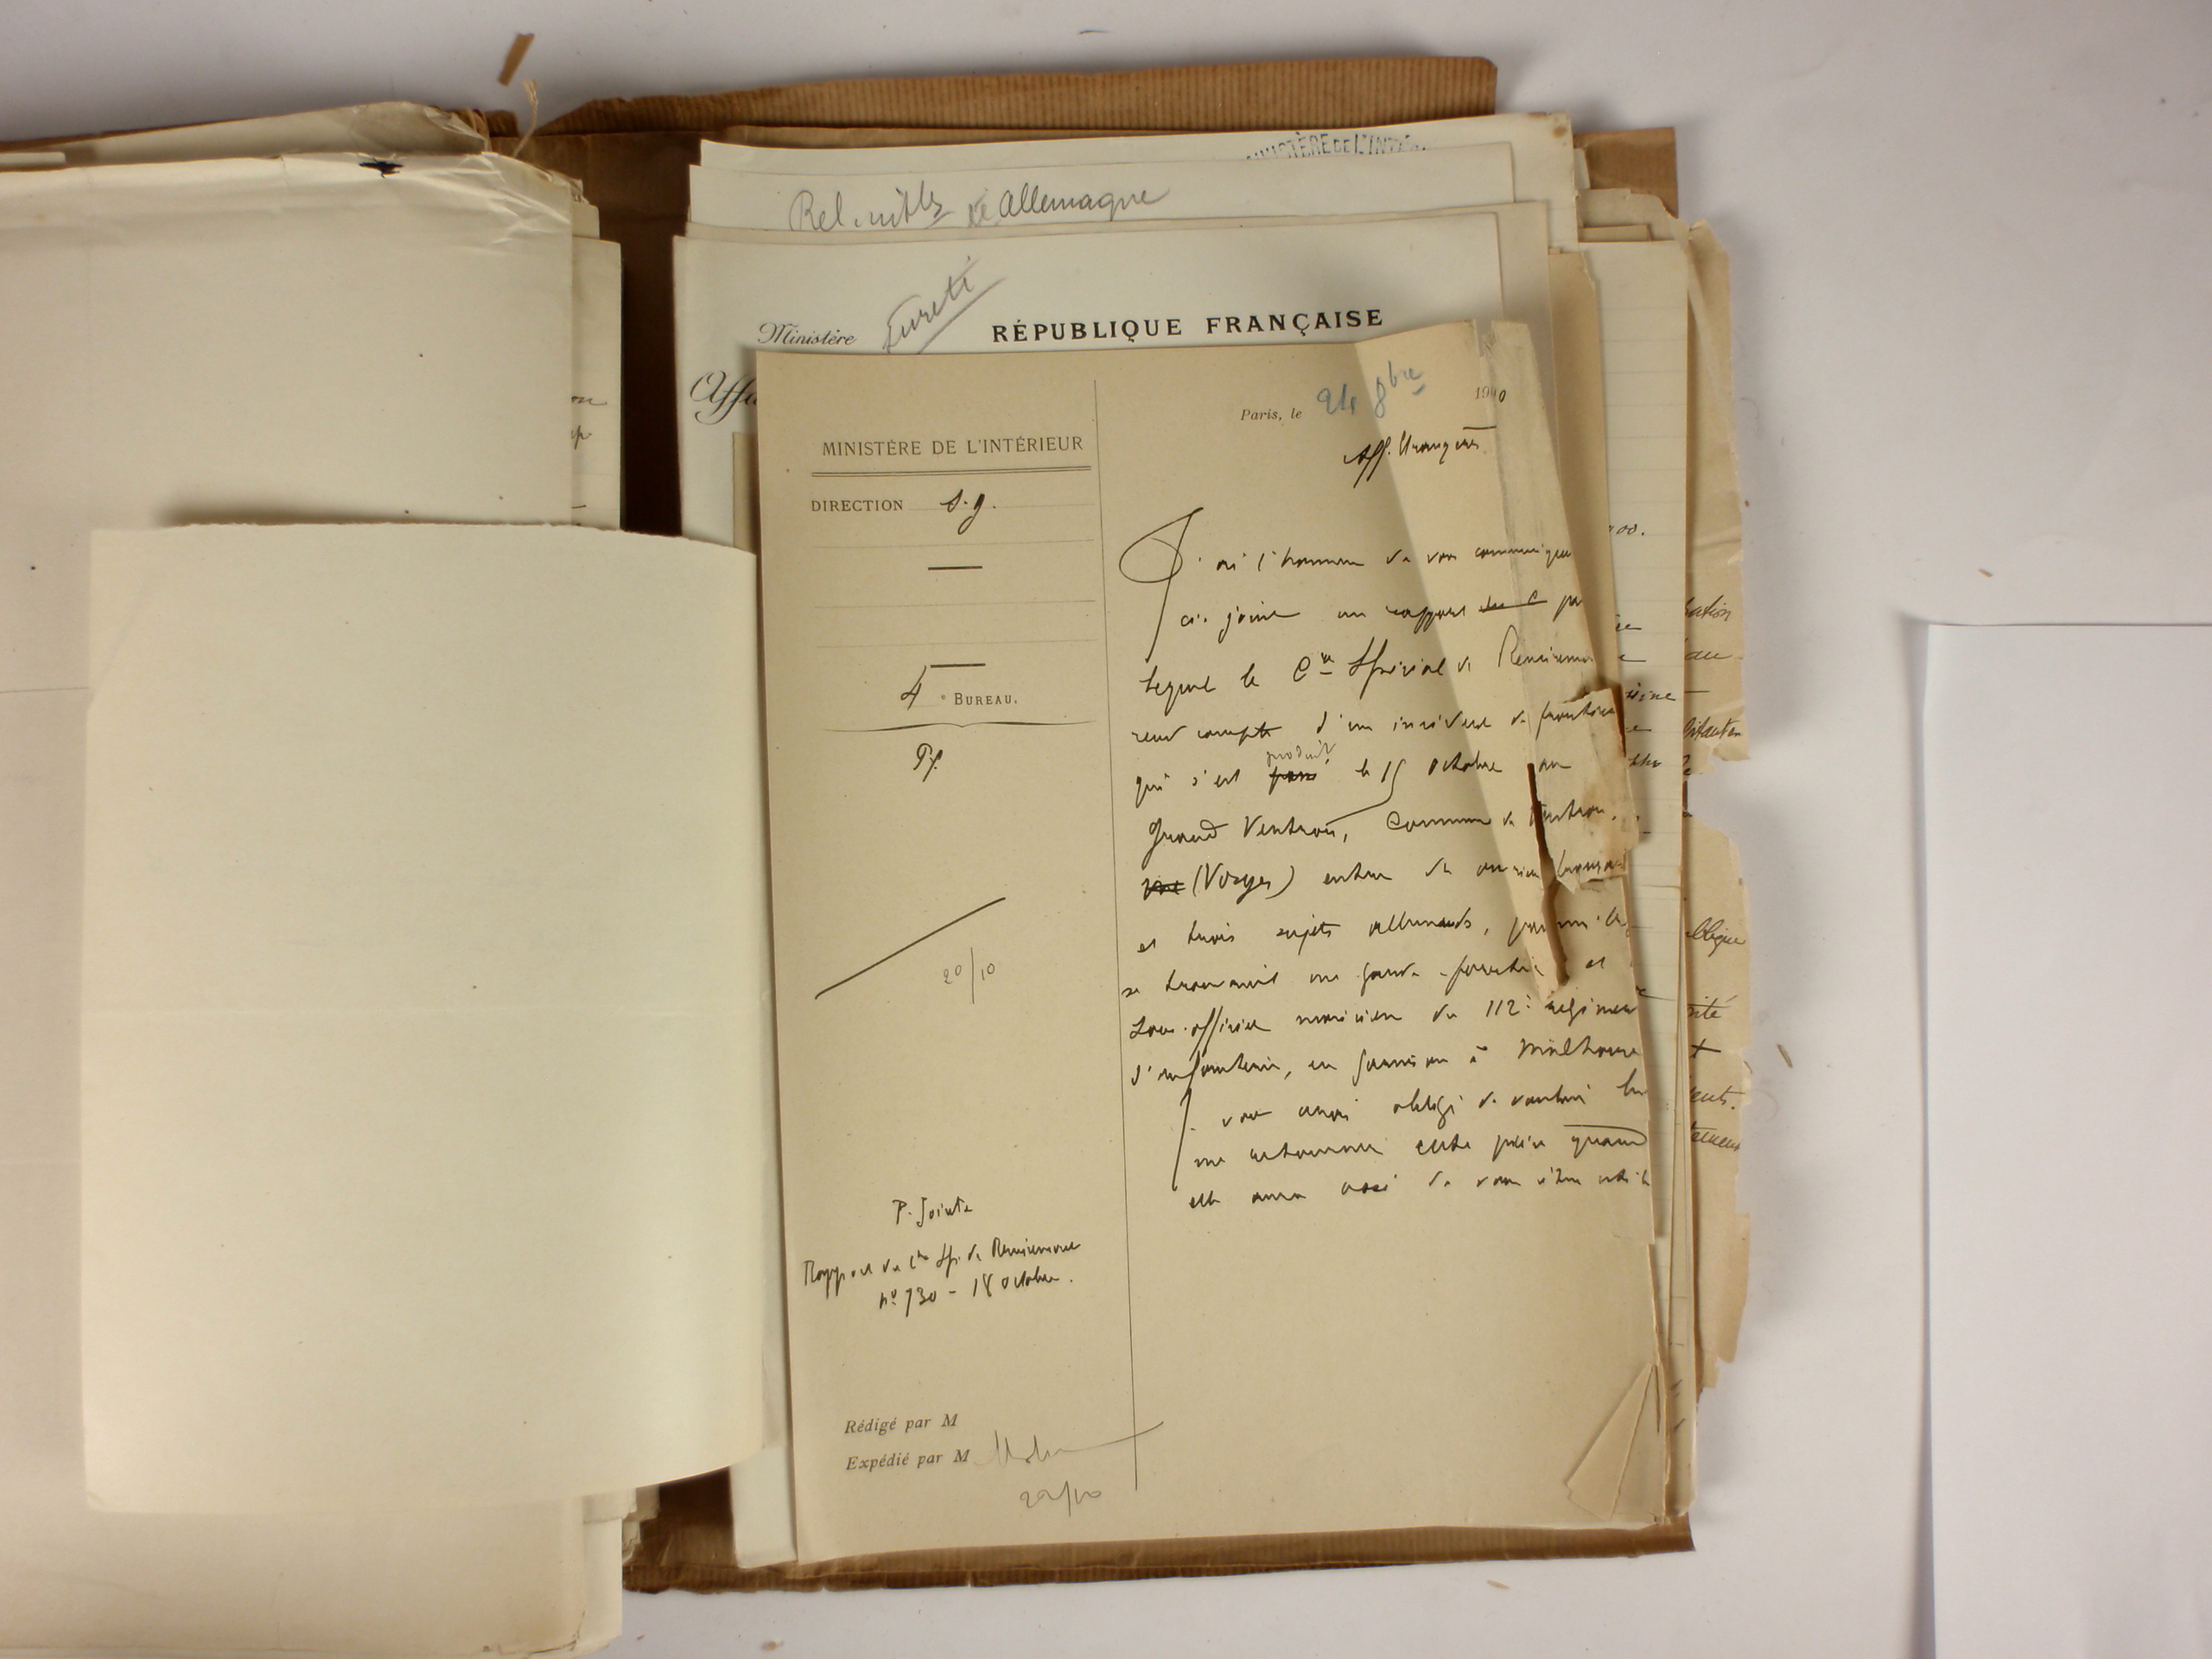 MINISTÈRE DE L'INTÉR
Rel. de Allemagne
Sureté
Ministère
RÉPUBLIQUE FRANÇAISE
Affa
Paris, le 24 8bre 1900
Aff. Etrangères
MINISTÈRE DE L'INTÉRIEUR
DIRECTION S. g.
4e BUREAU.
20/10
P. Jointe
Rapport du Cre Sp. de Remiremont
no 730 - 18 octobre.
Rédigé par M
Expédié par M
22/10
J'ai l'honneur de vous communiquer
ci-joint un rapport par
lequel le Cre Spécial de Remiremont
rend compte d'un incident de frontière
qui s'est produit le 15 octobre au
Grand Ventron, Commune de Ventron,
(Vosges) entre des
et trois sujets allemands, parmi les
se trouvaient un garde-forestier et
sous-officier musicien du 112e régiment
d'infanterie, en garnison à Mulhouse
J. vous serais obligé de vouloir bien
me retourner cette pièce quand
elle aura cessé de vous être utile
00.
sation
au
ité
ents.